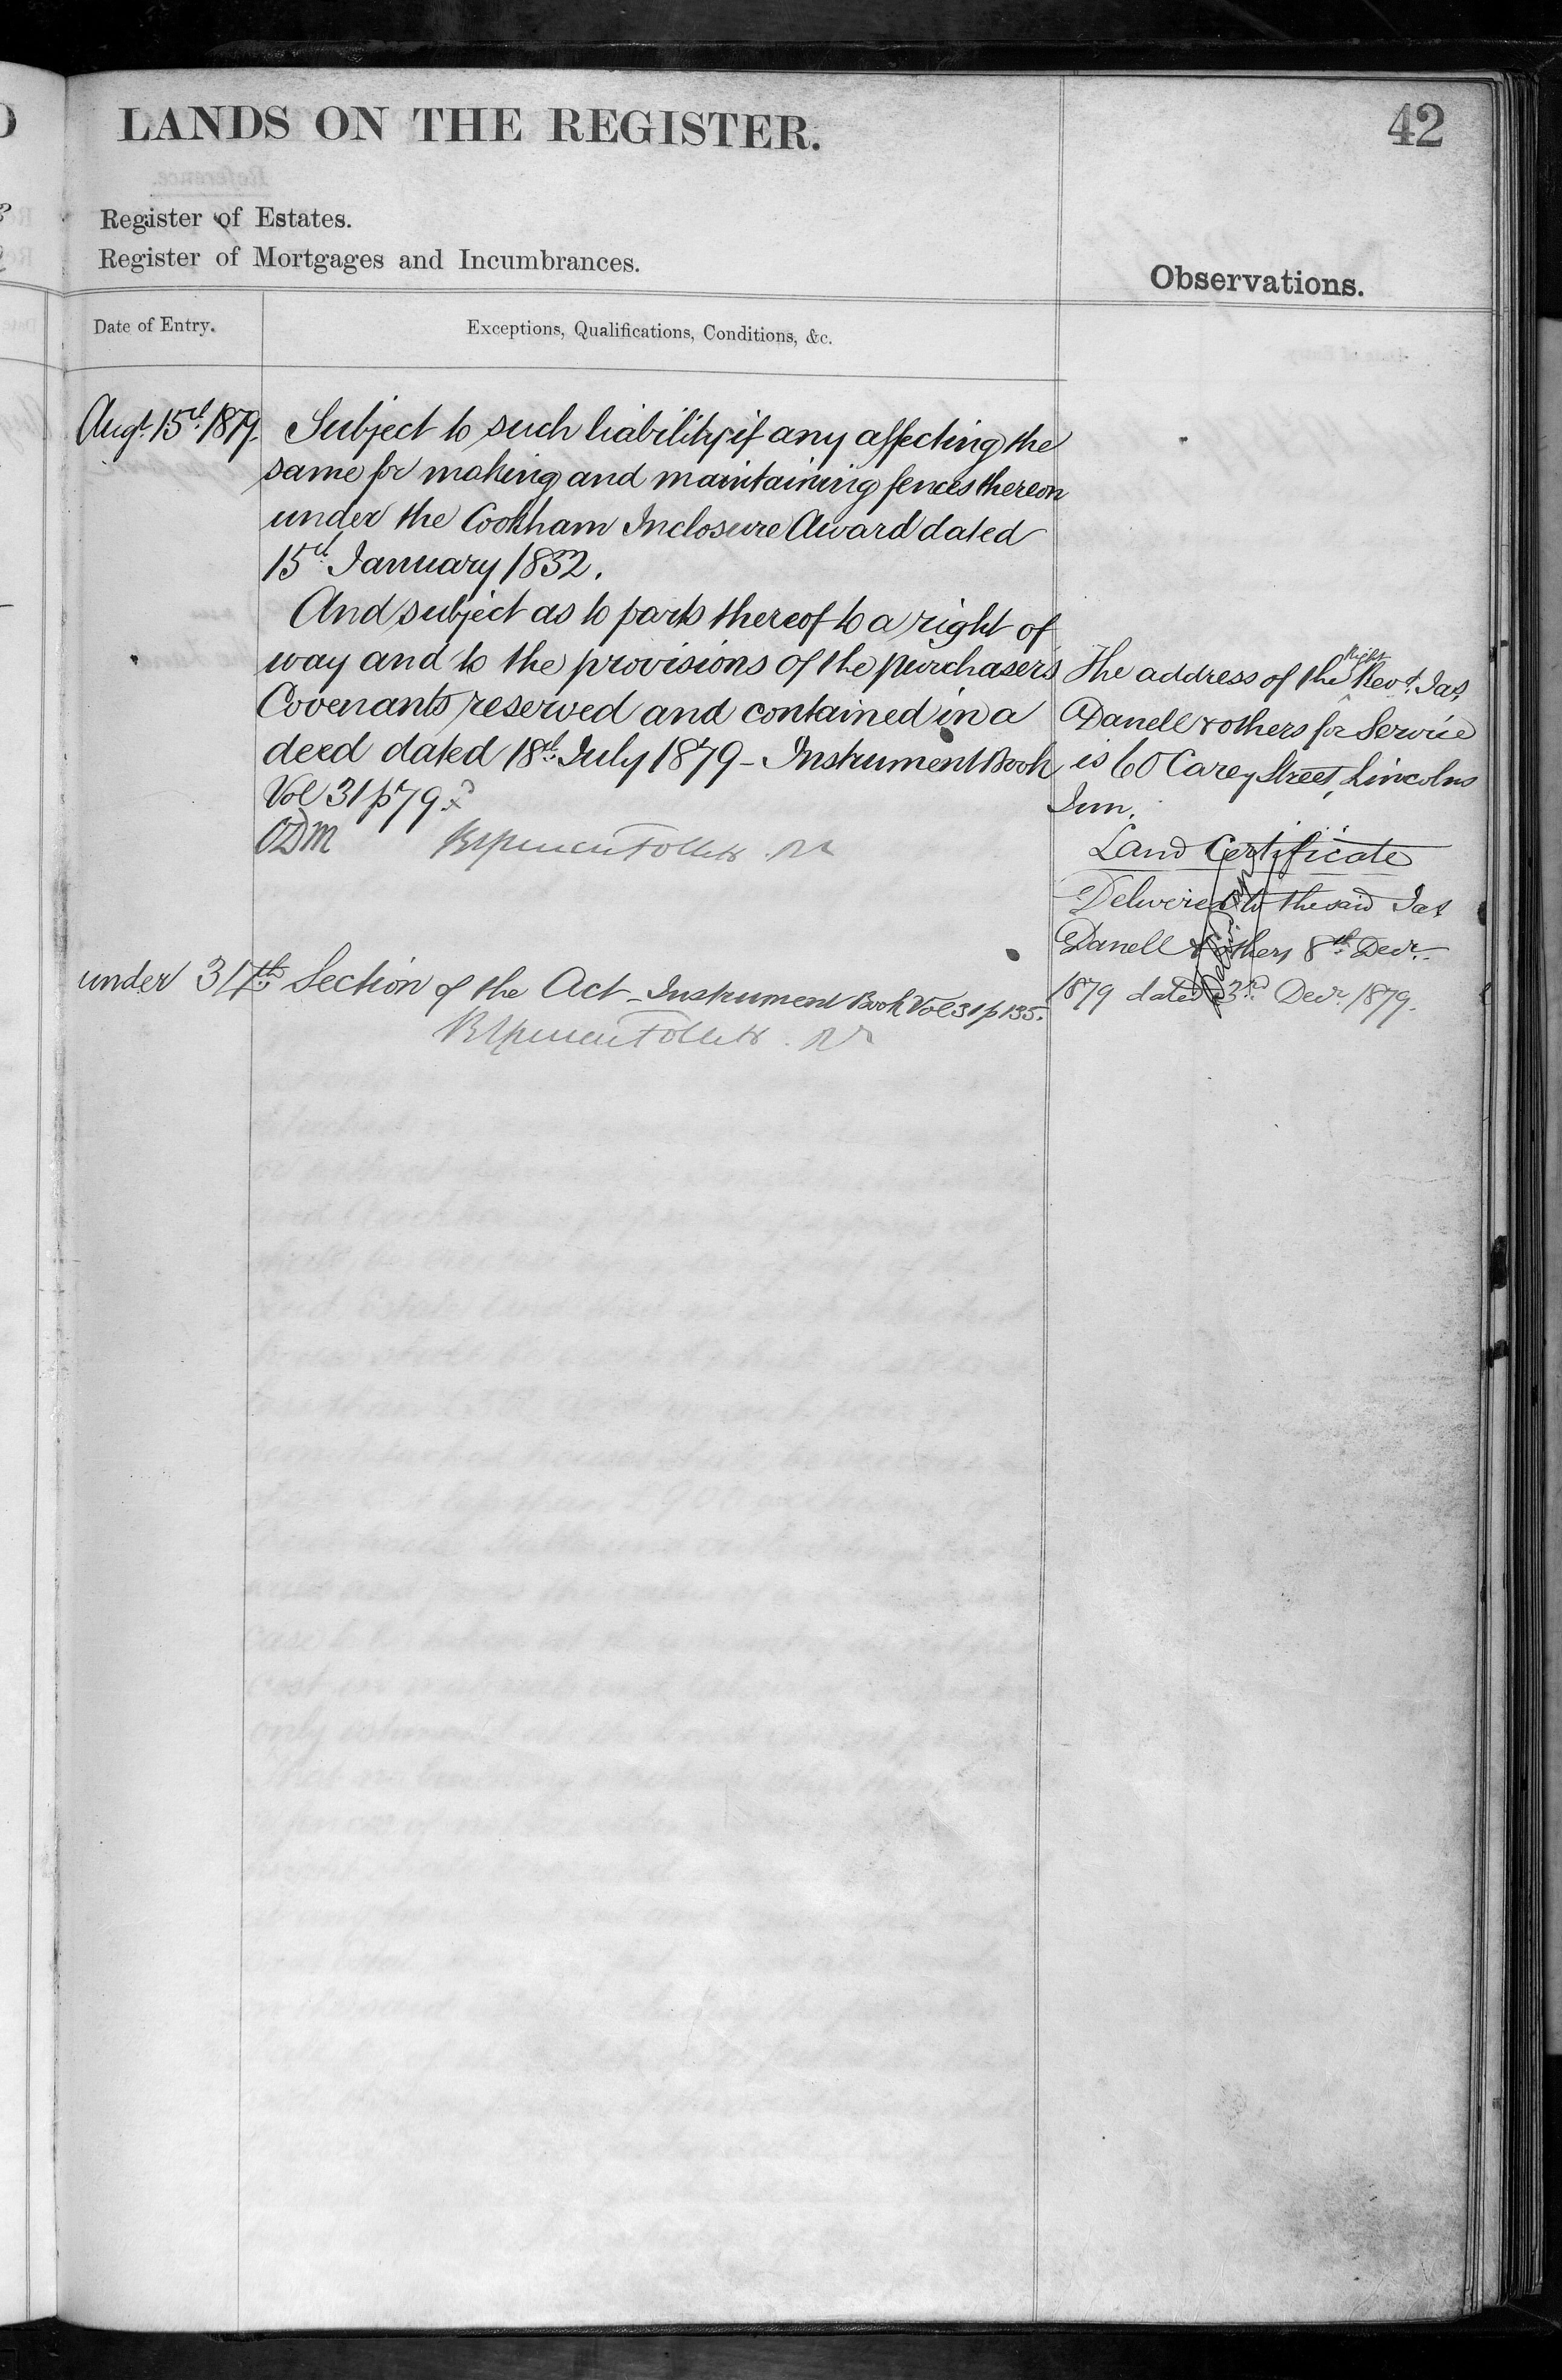 LANDS ON THE REGISTER.
42
Register of Estates.
Register of Mortgages and Incumbrances.
Observations.
Date of Entry.
Exceptions, Qualifications, Conditions, &c.
Augt. 15th 1879.
Subject to such liability if any affecting the
same for making and maintaining fences thereon
under the Cookham Inclosure Award dated
15th January 1832.
And subject as to parts thereof to a right of
way and to the provisions of the purchasers
Covenants reserved and contained in a
deed dated 18th July 1879 - Instrument Book
Vol 31 p 79.
ODM
under 317th Section of the Act - Instrument Book Vol 31 p 135.
The address of the Right Revd. Jas.
Danell & others for Service
is 60 Carey Street, Lincolns
Inn.
Land Certificate
Delivered to the said Jas
Danell & others 8th Decr.
1879 dated 3rd Decr. 1879.